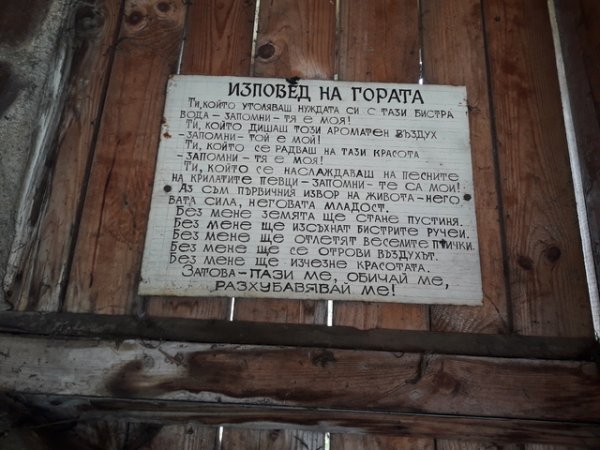 ИЗПОВЕД НА ГОРАТА
Ти, който утоляваш нуждата си с тази бистра
вода – запомни – тя е моя!
Ти, който дишаш този ароматен въздух
– запомни – той е мой!
Ти, който се радваш на тази красота
– запомни – тя е моя!
Ти, който се наслаждаваш на песните
на крилатите певци – запомни – те са мои!
Аз съм първичния извор на живота – него
вата сила, неговата младост.
Без мене земята ще стане пустиня.
Без мене ще изсъхнат бистрите ручеи.
Без мене ще отлетят веселите птички.
Без мене ще се отрови въздухът.
Без мене ще изчезне красотата.
Затова – пази ме, обичай ме,
разхубавявай ме!